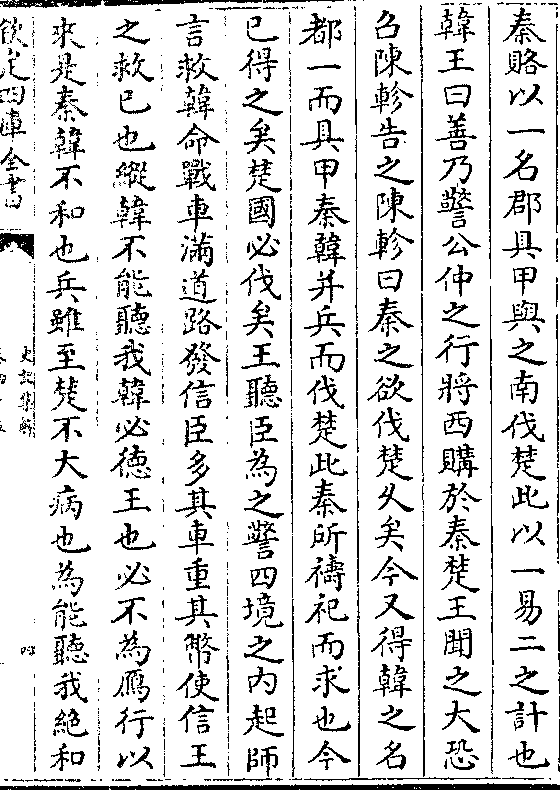 秦賂以一名郡具甲與之南伐楚此以一易二之計也
韓王曰善乃警公仲之行將西購於秦楚王聞之大恐
召陳軫告之陳軫曰秦之欲伐楚乆矣今又得韓之名
都一而具甲秦韓并兵而伐楚此秦所禱祀而求也今
已得之矣楚國必伐矣王聽臣為之警四境之内起師
言救韓命戰車滿道路發信臣多其車重其幣使信王
之救已也縱韓不能聽我韓必德王也必不為鴈行以
來是秦韓不和也兵雖至楚不大病也為能聽我絶和
欽定四庫全書
史記集解
四